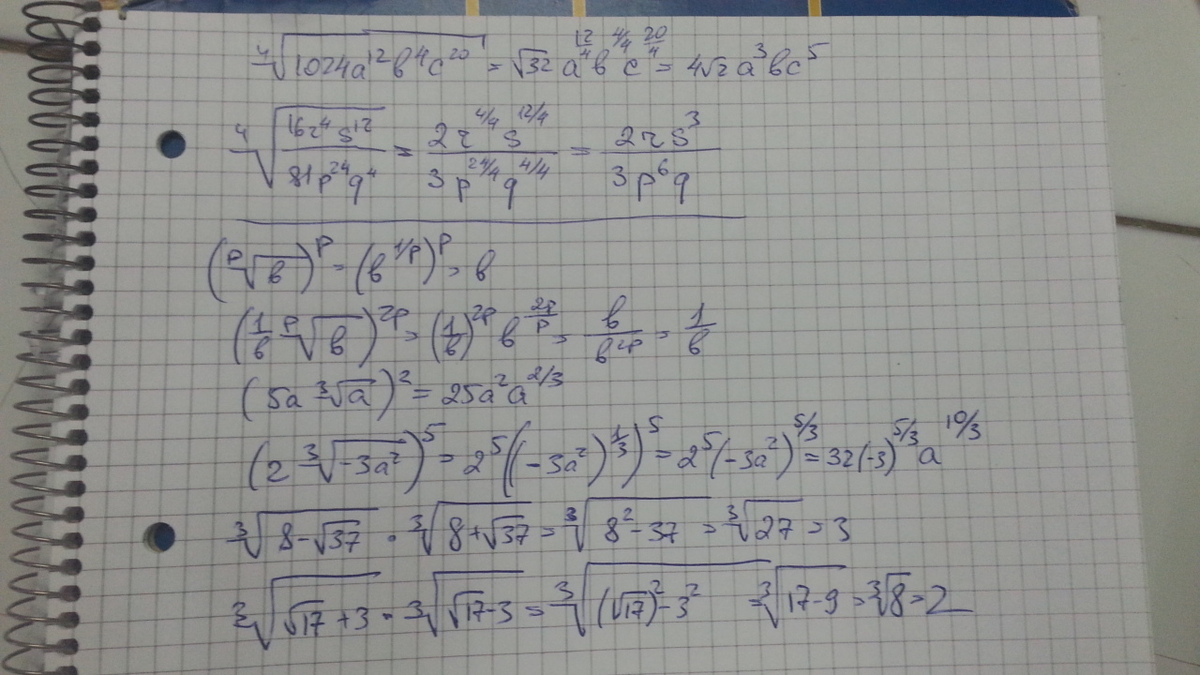 ⁴√(1024a¹²b⁴c²⁰) = √32 a^(12/4) b^(4/4) c^(20/4) = 4√2 a³bc⁵
⁴√(16r⁴s¹²/81p²⁴q⁴) = 2r^(4/4) s^(12/4) / 3p^(24/4) q^(4/4) = 2rs³/3p⁶q
(ᵖ√b)ᵖ = (b^(1/p))ᵖ = b
(1/b ᵖ√b)^(2p) = (1/b)^(2p) b^(2p/p) = b/b^(2p) = 1/b
(5a ³√a)² = 25a²a^(2/3)
(2 ³√(-3a²))⁵ = 2⁵((-3a²)^(1/3))⁵ = 2⁵(-3a²)^(5/3) = 32(-3)^(5/3) a^(10/3)
³√(8-√37) · ³√(8+√37) = ³√(8²-37) = ³√27 = 3
³√(√17+3) · ³√(√17-3) = ³√((√17)²-3²) = ³√(17-9) = ³√8 = 2